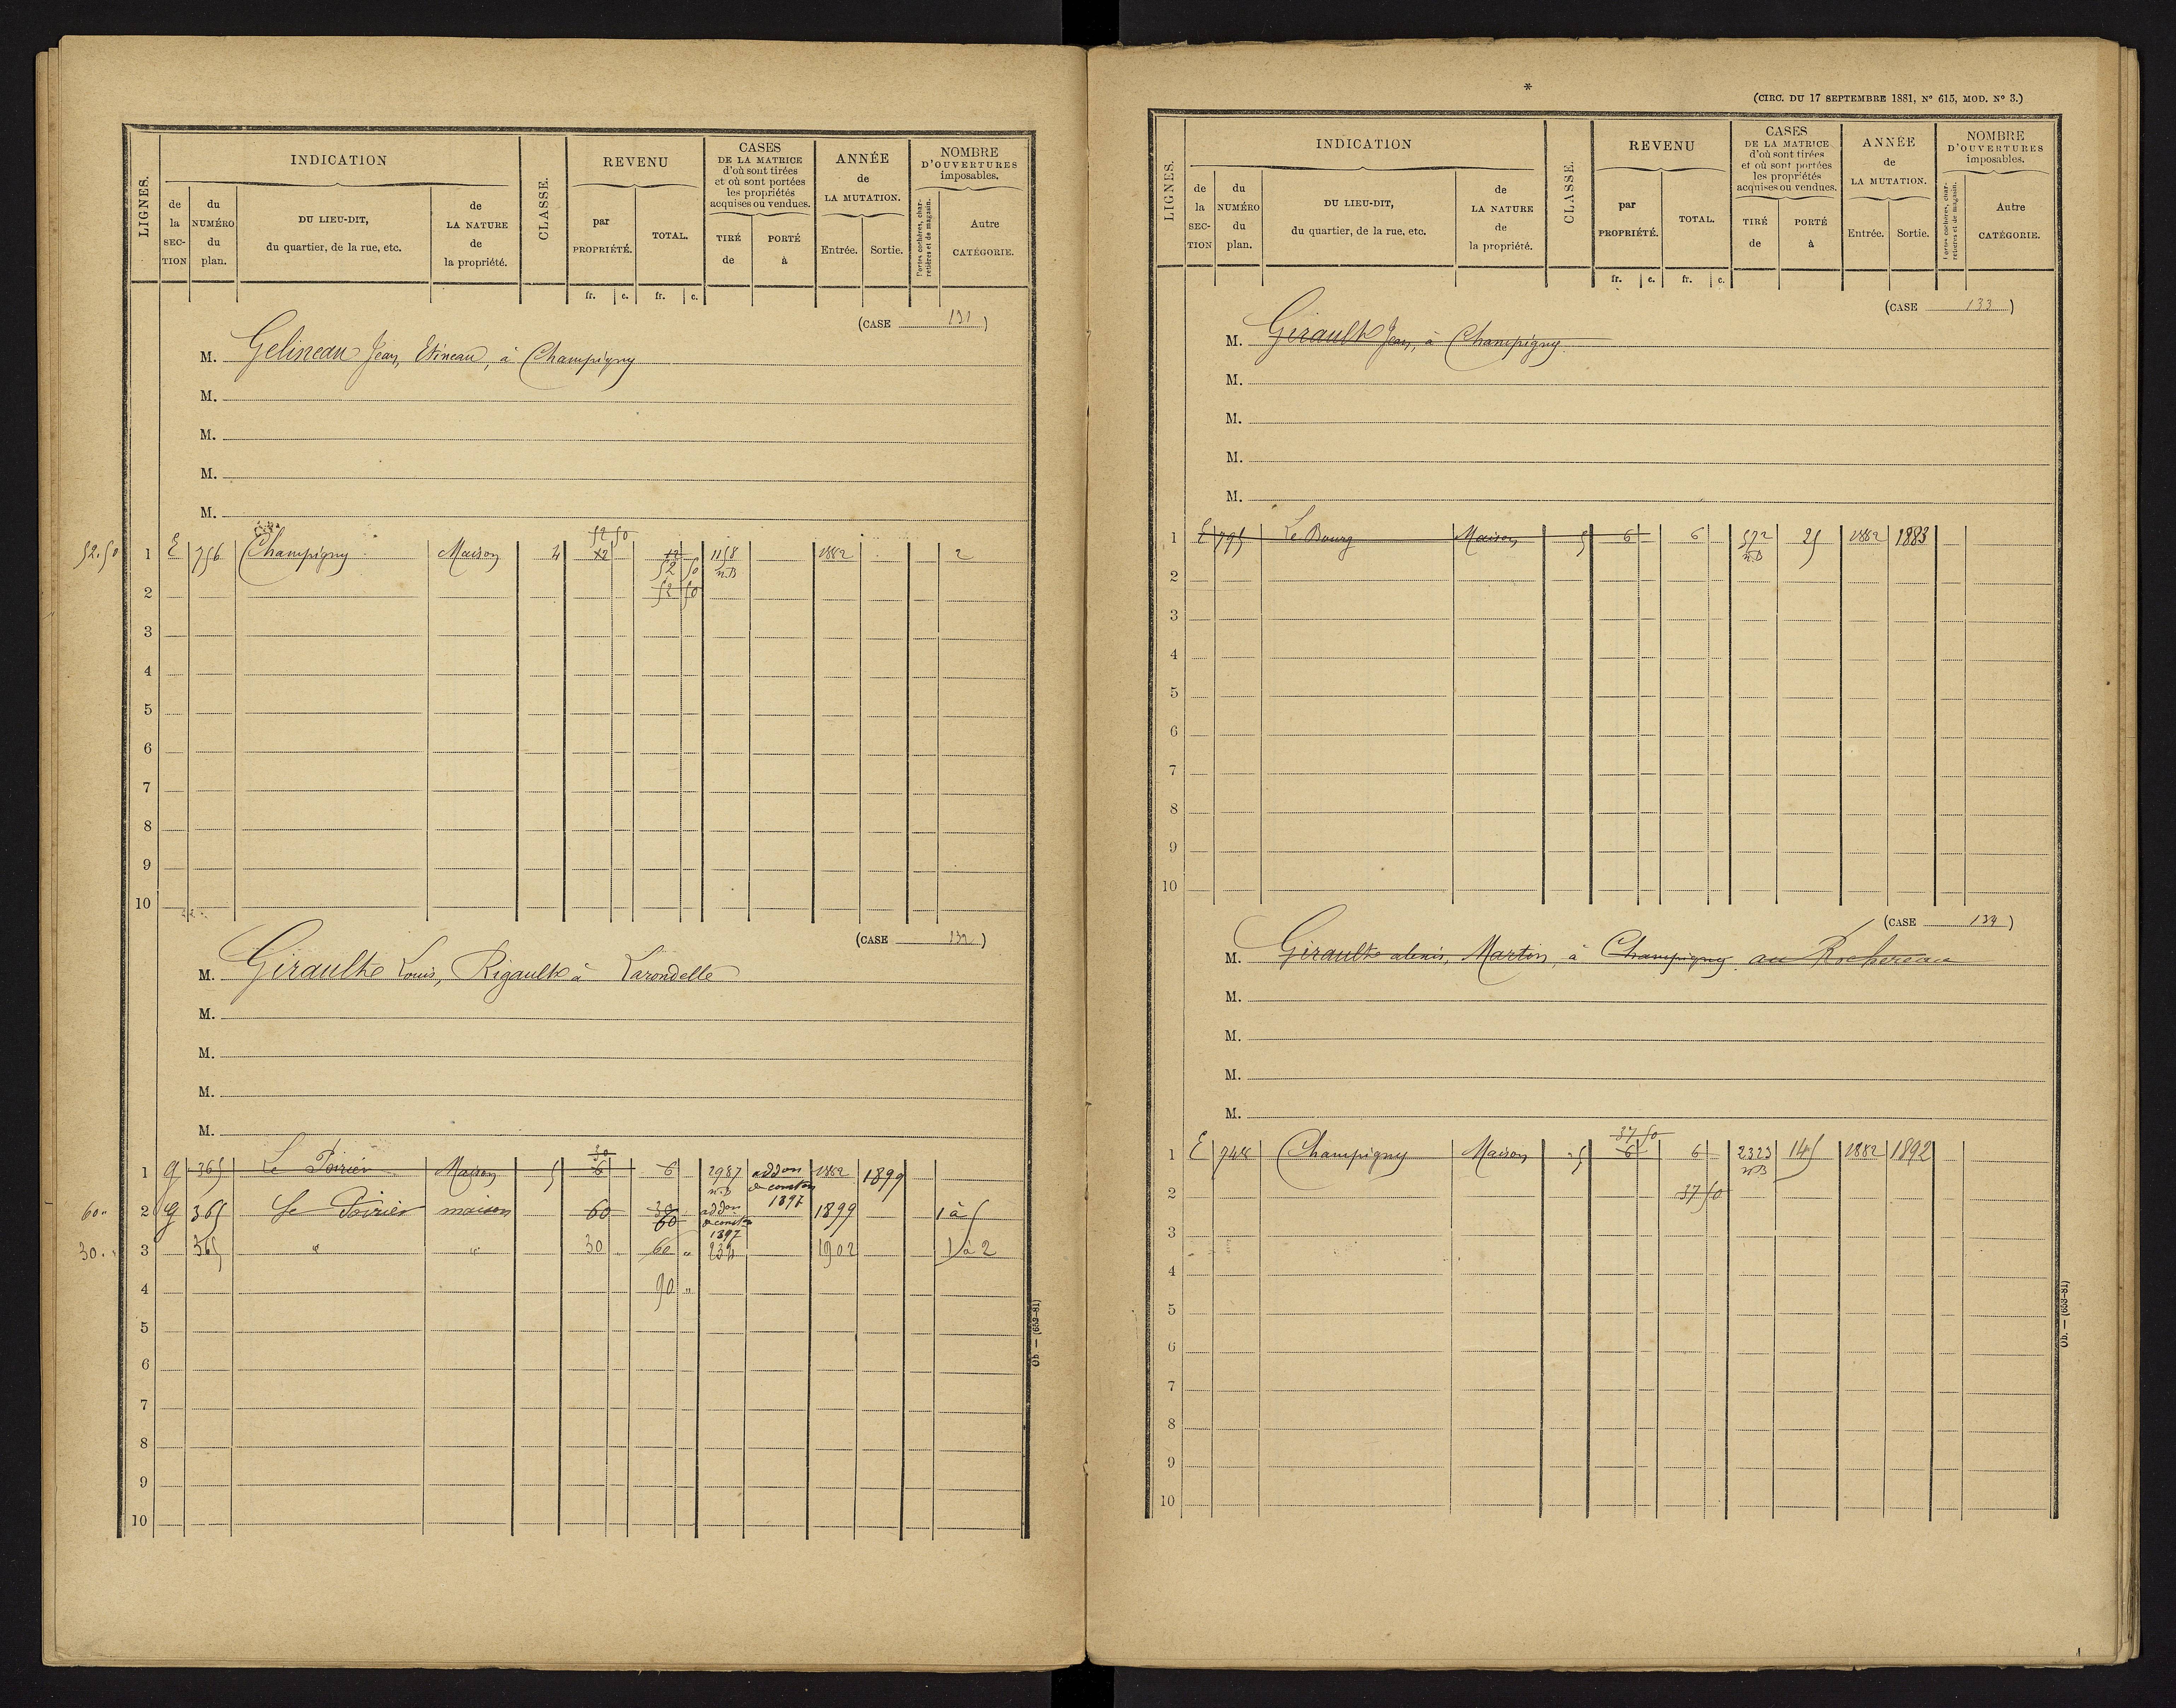 LIGNES.
INDICATION
de la SEC-TION
du NUMÉRO du plan.
DU LIEU-DIT, du quartier, de la rue, etc.
de LA NATURE de la propriété.
CLASSE.
REVENU
par PROPRIÉTÉ.
TOTAL.
CASES DE LA MATRICE d'où sont tirées et où sont portées les propriétés acquises ou vendues.
TIRÉ de
PORTÉ à
ANNÉE de LA MUTATION.
Entrée.
Sortie.
NOMBRE D'OUVERTURES imposables.
Portes cochères, charretières et de magasin.
Autre CATÉGORIE.
fr. c. fr. c.
(CASE 131)
M. Gelineau Jean, Etineau, à Champigny
M.
M.
M.
M.
52 50
52.50 1 E 756 Champigny Maison 4 12 12 1158 1882 2
52 50 n.B
2 52 50
3
4
5
6
7
8
9
10
(CASE 132)
M. Girault Louis, Rigault à Larondelle
M.
M.
M.
M.
30
1 G 365 Le Poirier Maison 5 6 6 2987 addon 1882 1899
n.B de conston 1897
60 2 G 365 Le Poirier maison 60 30 addon 1899 1 à 5
60 de conston 1897
30. 3 365 " " 30 60 " 234 1902 1 à 2
4 90 "
5
6
7
8
9
10
Ob. — (653-81)
*
(CIRC. DU 17 SEPTEMBRE 1881, Nº 615, MOD. Nº 3.)
LIGNES.
INDICATION
de la SEC-TION
du NUMÉRO du plan.
DU LIEU-DIT, du quartier, de la rue, etc.
de LA NATURE de la propriété.
CLASSE.
REVENU
par PROPRIÉTÉ.
TOTAL.
CASES DE LA MATRICE d'où sont tirées et où sont portées les propriétés acquises ou vendues.
TIRÉ de
PORTÉ à
ANNÉE de LA MUTATION.
Entrée.
Sortie.
NOMBRE D'OUVERTURES imposables.
Portes cochères, charretières et de magasin.
Autre CATÉGORIE.
fr. c. fr. c.
(CASE 133)
M. Girault Jean, à Champigny
M.
M.
M.
M.
1 E 795 Le Bourg Maison 5 6 6 572 25 1882 1883
n.B
2
3
4
5
6
7
8
9
10
(CASE 134)
M. Girault alexis, Martin, à Champigny au Rochereau
M.
M.
M.
M.
37 50
1 E 748 Champigny Maison 5 6 6 2323 145 1882 1892
n.B
2 37 50
3
4
5
6
7
8
9
10
Ob. — (653-81)